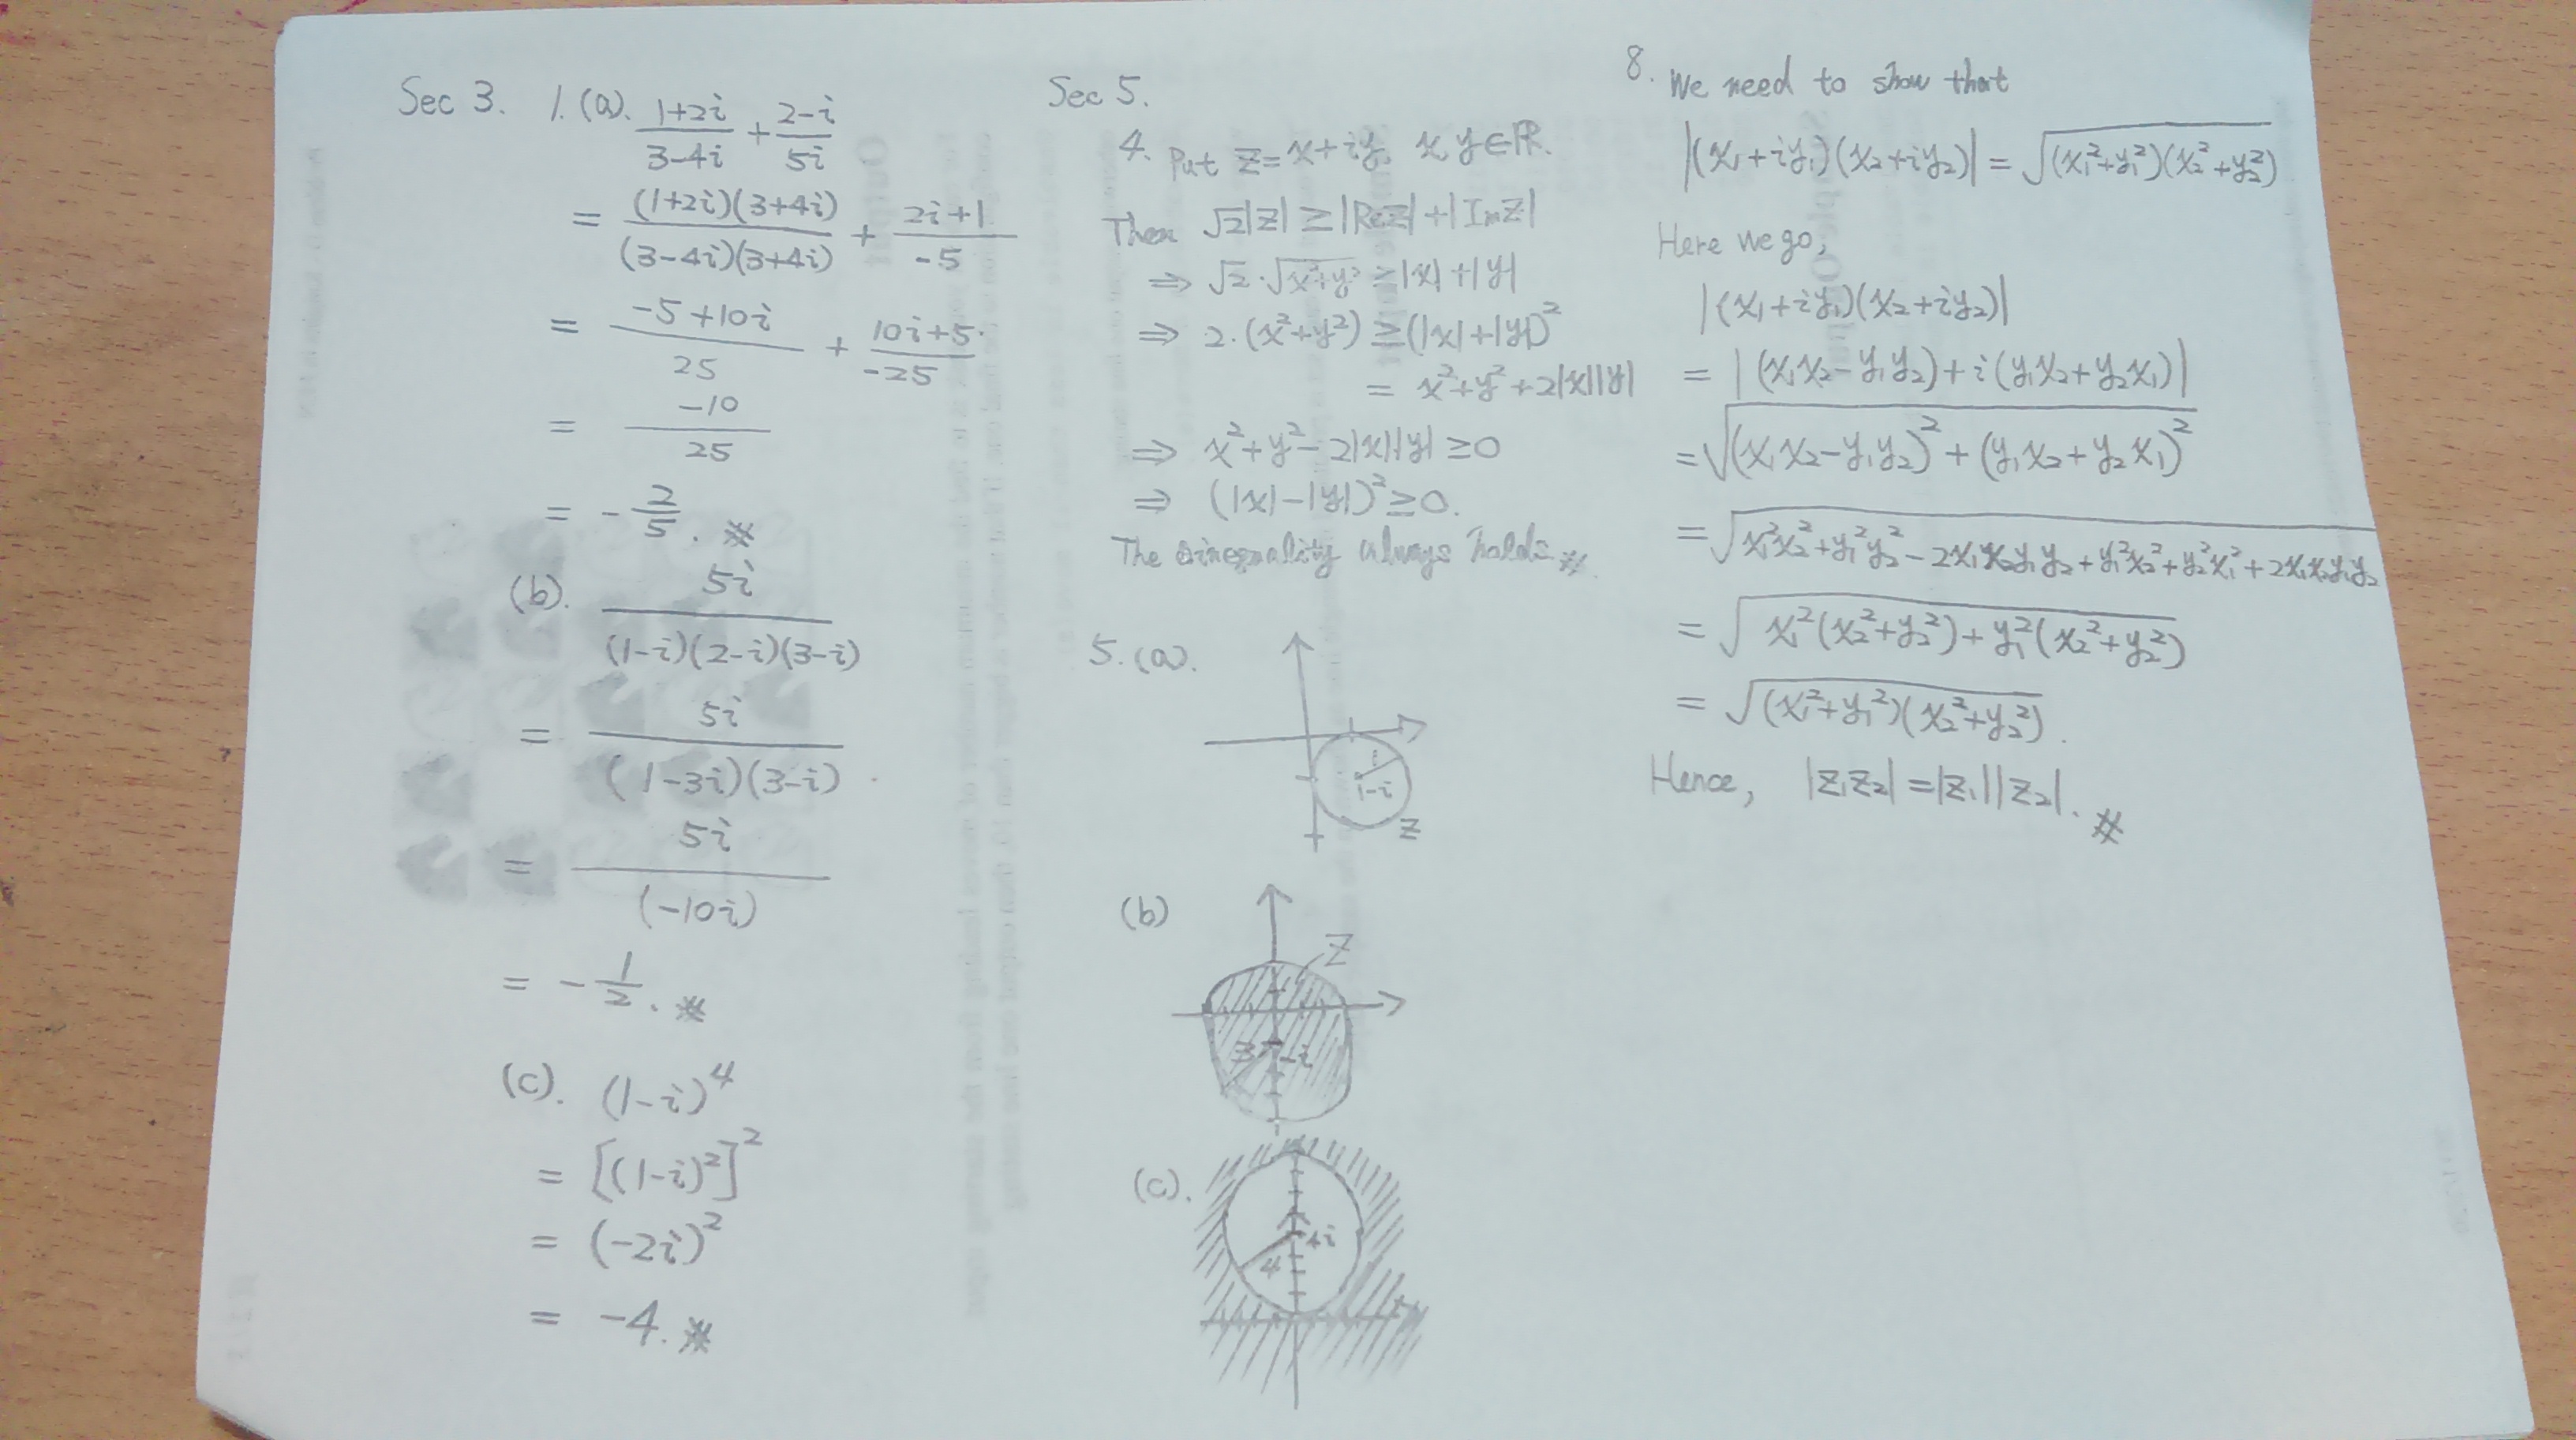 Sec 3. 1.(a). \frac{1+2i}{3-4i} + \frac{2-i}{5i}
= \frac{(1+2i)(3+4i)}{(3-4i)(3+4i)} + \frac{2i+1}{-5}
= \frac{-5+10i}{25} + \frac{10i+5}{-25}
= \frac{-10}{25}
= -\frac{2}{5}. ※
(b). \frac{5i}{(1-i)(2-i)(3-i)}
= \frac{5i}{(1-3i)(3-i)}
= \frac{5i}{(-10i)}
= -\frac{1}{2}. ※
(c). (1-i)^4
= [(1-i)^2]^2
= (-2i)^2
= -4. ※
Sec 5.
4. Put z=x+iy, x, y∈ℝ.
Then √2|z| ≥ |Re z| + |Im z|
⇒ √2·√(x²+y²) ≥ |x|+|y|
⇒ 2·(x²+y²) ≥ (|x|+|y|)²
= x²+y²+2|x||y|
⇒ x²+y²-2|x||y| ≥ 0
⇒ (|x|-|y|)² ≥ 0.
The inequality always holds. ※
5. (a).
1
1-i
z
(b)
z
3 -i
(c).
4i
4
8. We need to show that
|(x₁+iy₁)(x₂+iy₂)| = √((x₁²+y₁²)(x₂²+y₂²))
Here we go,
|(x₁+iy₁)(x₂+iy₂)|
= |(x₁x₂-y₁y₂)+i(y₁x₂+y₂x₁)|
= √((x₁x₂-y₁y₂)²+(y₁x₂+y₂x₁)²)
= √(x₁²x₂²+y₁²y₂²-2x₁x₂y₁y₂+y₁²x₂²+y₂²x₁²+2x₁x₂y₁y₂)
= √(x₁²(x₂²+y₂²)+y₁²(x₂²+y₂²))
= √((x₁²+y₁²)(x₂²+y₂²)).
Hence, |z₁z₂|=|z₁||z₂|. ※